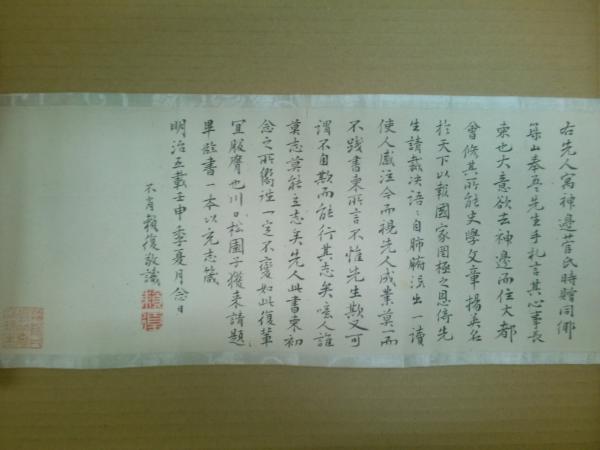 右先人寓神邊菅氏時贈同鄉
築山奉盈先生手札言其心事長
柬也大意欲去神邊而住大都
會修其所能史學文章揚其名
於天下以報國家罔極之恩 先
生請裁決語々自肺腑流出一讀
使人感泣今而視先人成業莫一而
不踐書柬所言不惟先生欺又可
謂不自欺而能行其志矣嗟人誰
莫志莫能立志矣先人此書柬初
念之所嚮 一定不變如此復輩
宜服膺也川口松園子獲来請題
畢 書一本以充志箴
明治五載壬申季夏月念日
不肖賴復敬識